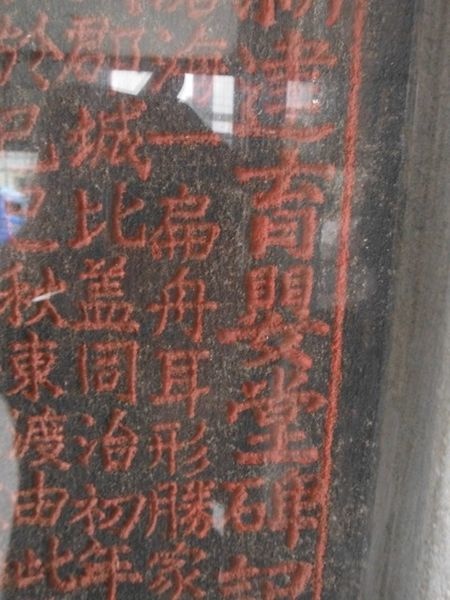 湖建育嬰堂碑記
海一扁舟耳形勝家
郡城比盖同治初年
於己巳秋東渡由此